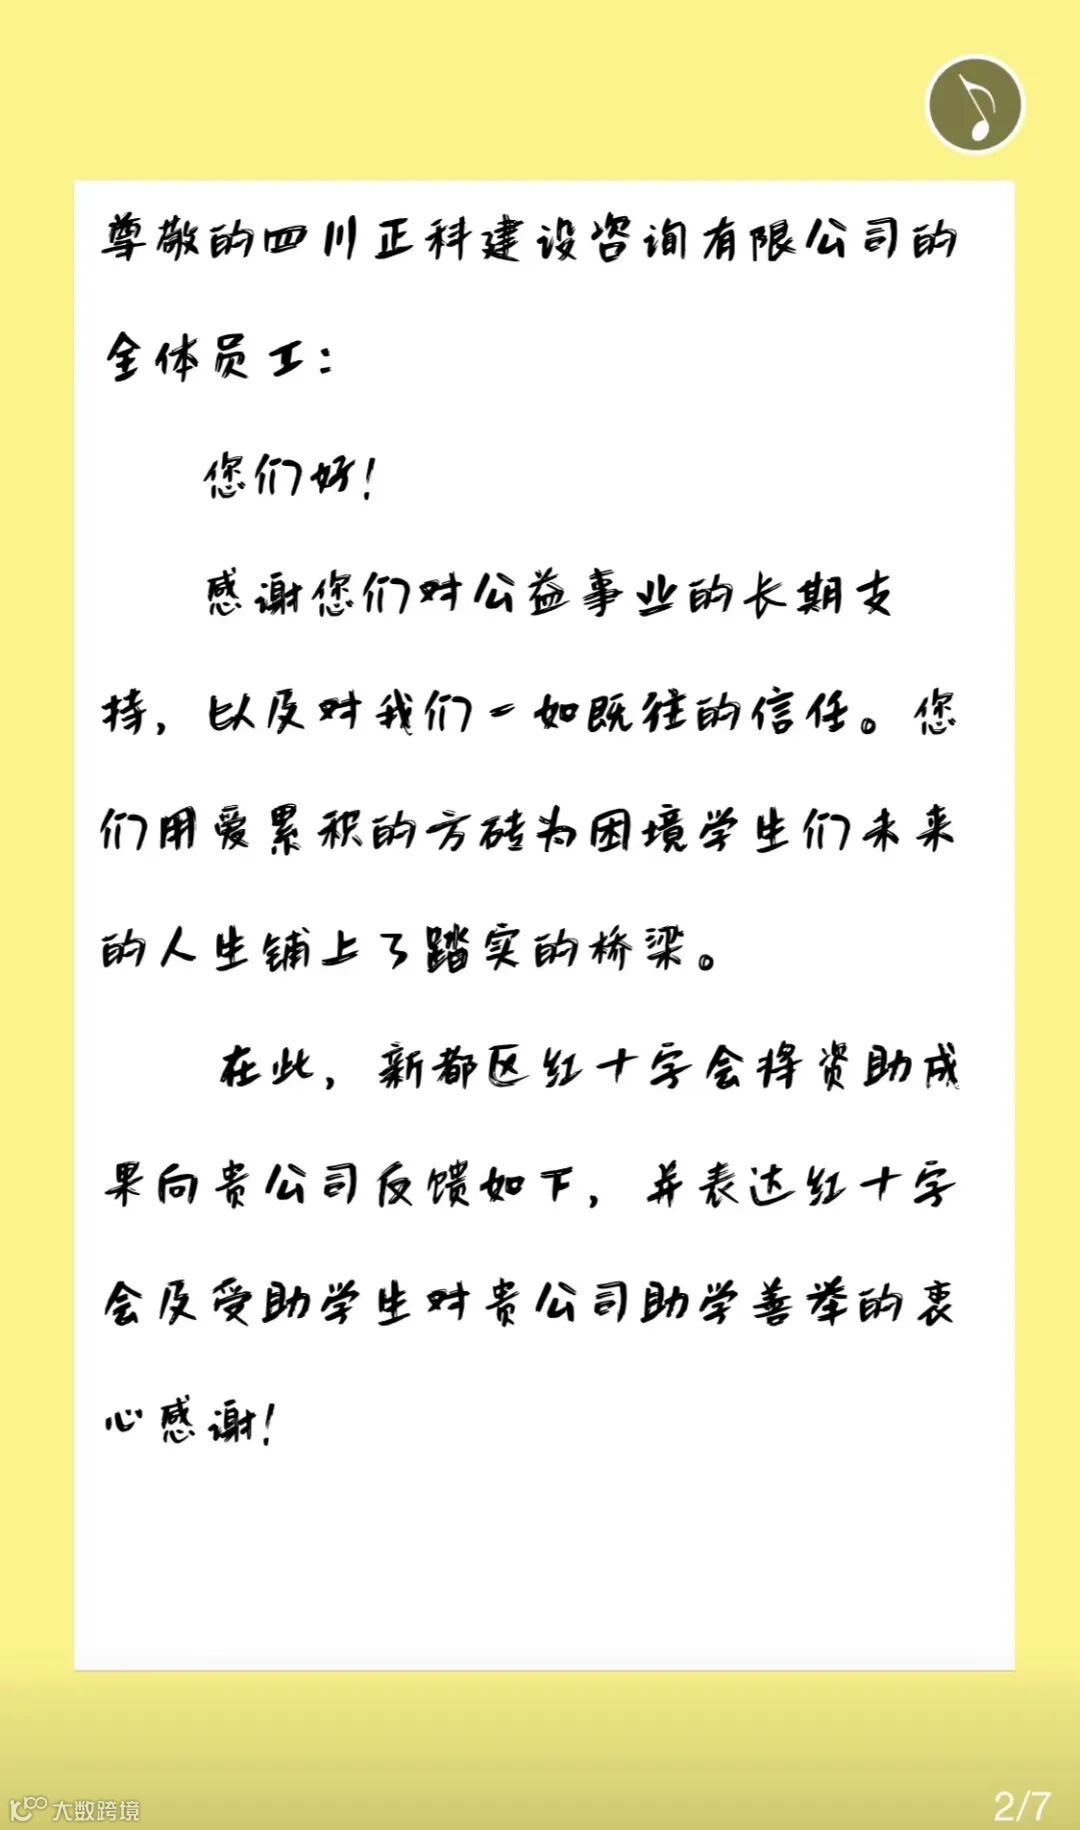 尊敬的四川正科建设咨询有限公司的
全体员工：
您们好！
感谢您们对公益事业的长期支
持，以及对我们一如既往的信任。您
们用爱累积的方砖为困境学生们未来
的人生铺上了踏实的桥梁。
在此，新都区红十字会将资助成
果向贵公司反馈如下，并表达红十字
会及受助学生对贵公司助学善举的衷
心感谢！
大数跨境
2/7